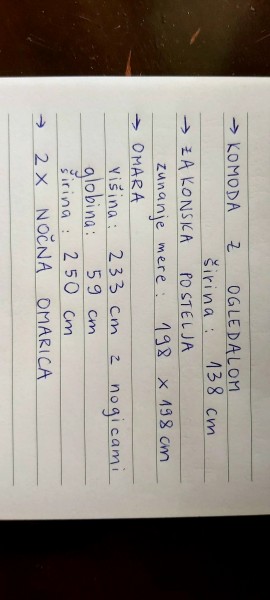 → KOMODA Z OGLEDALOM
širina: 138 cm
→ ZAKONSKA POSTELJA
zunanje mere: 198 x 198 cm
→ OMARA
višina: 233 cm z nogicami
globina: 59 cm
širina: 250 cm
→ 2X NOČNA OMARICA